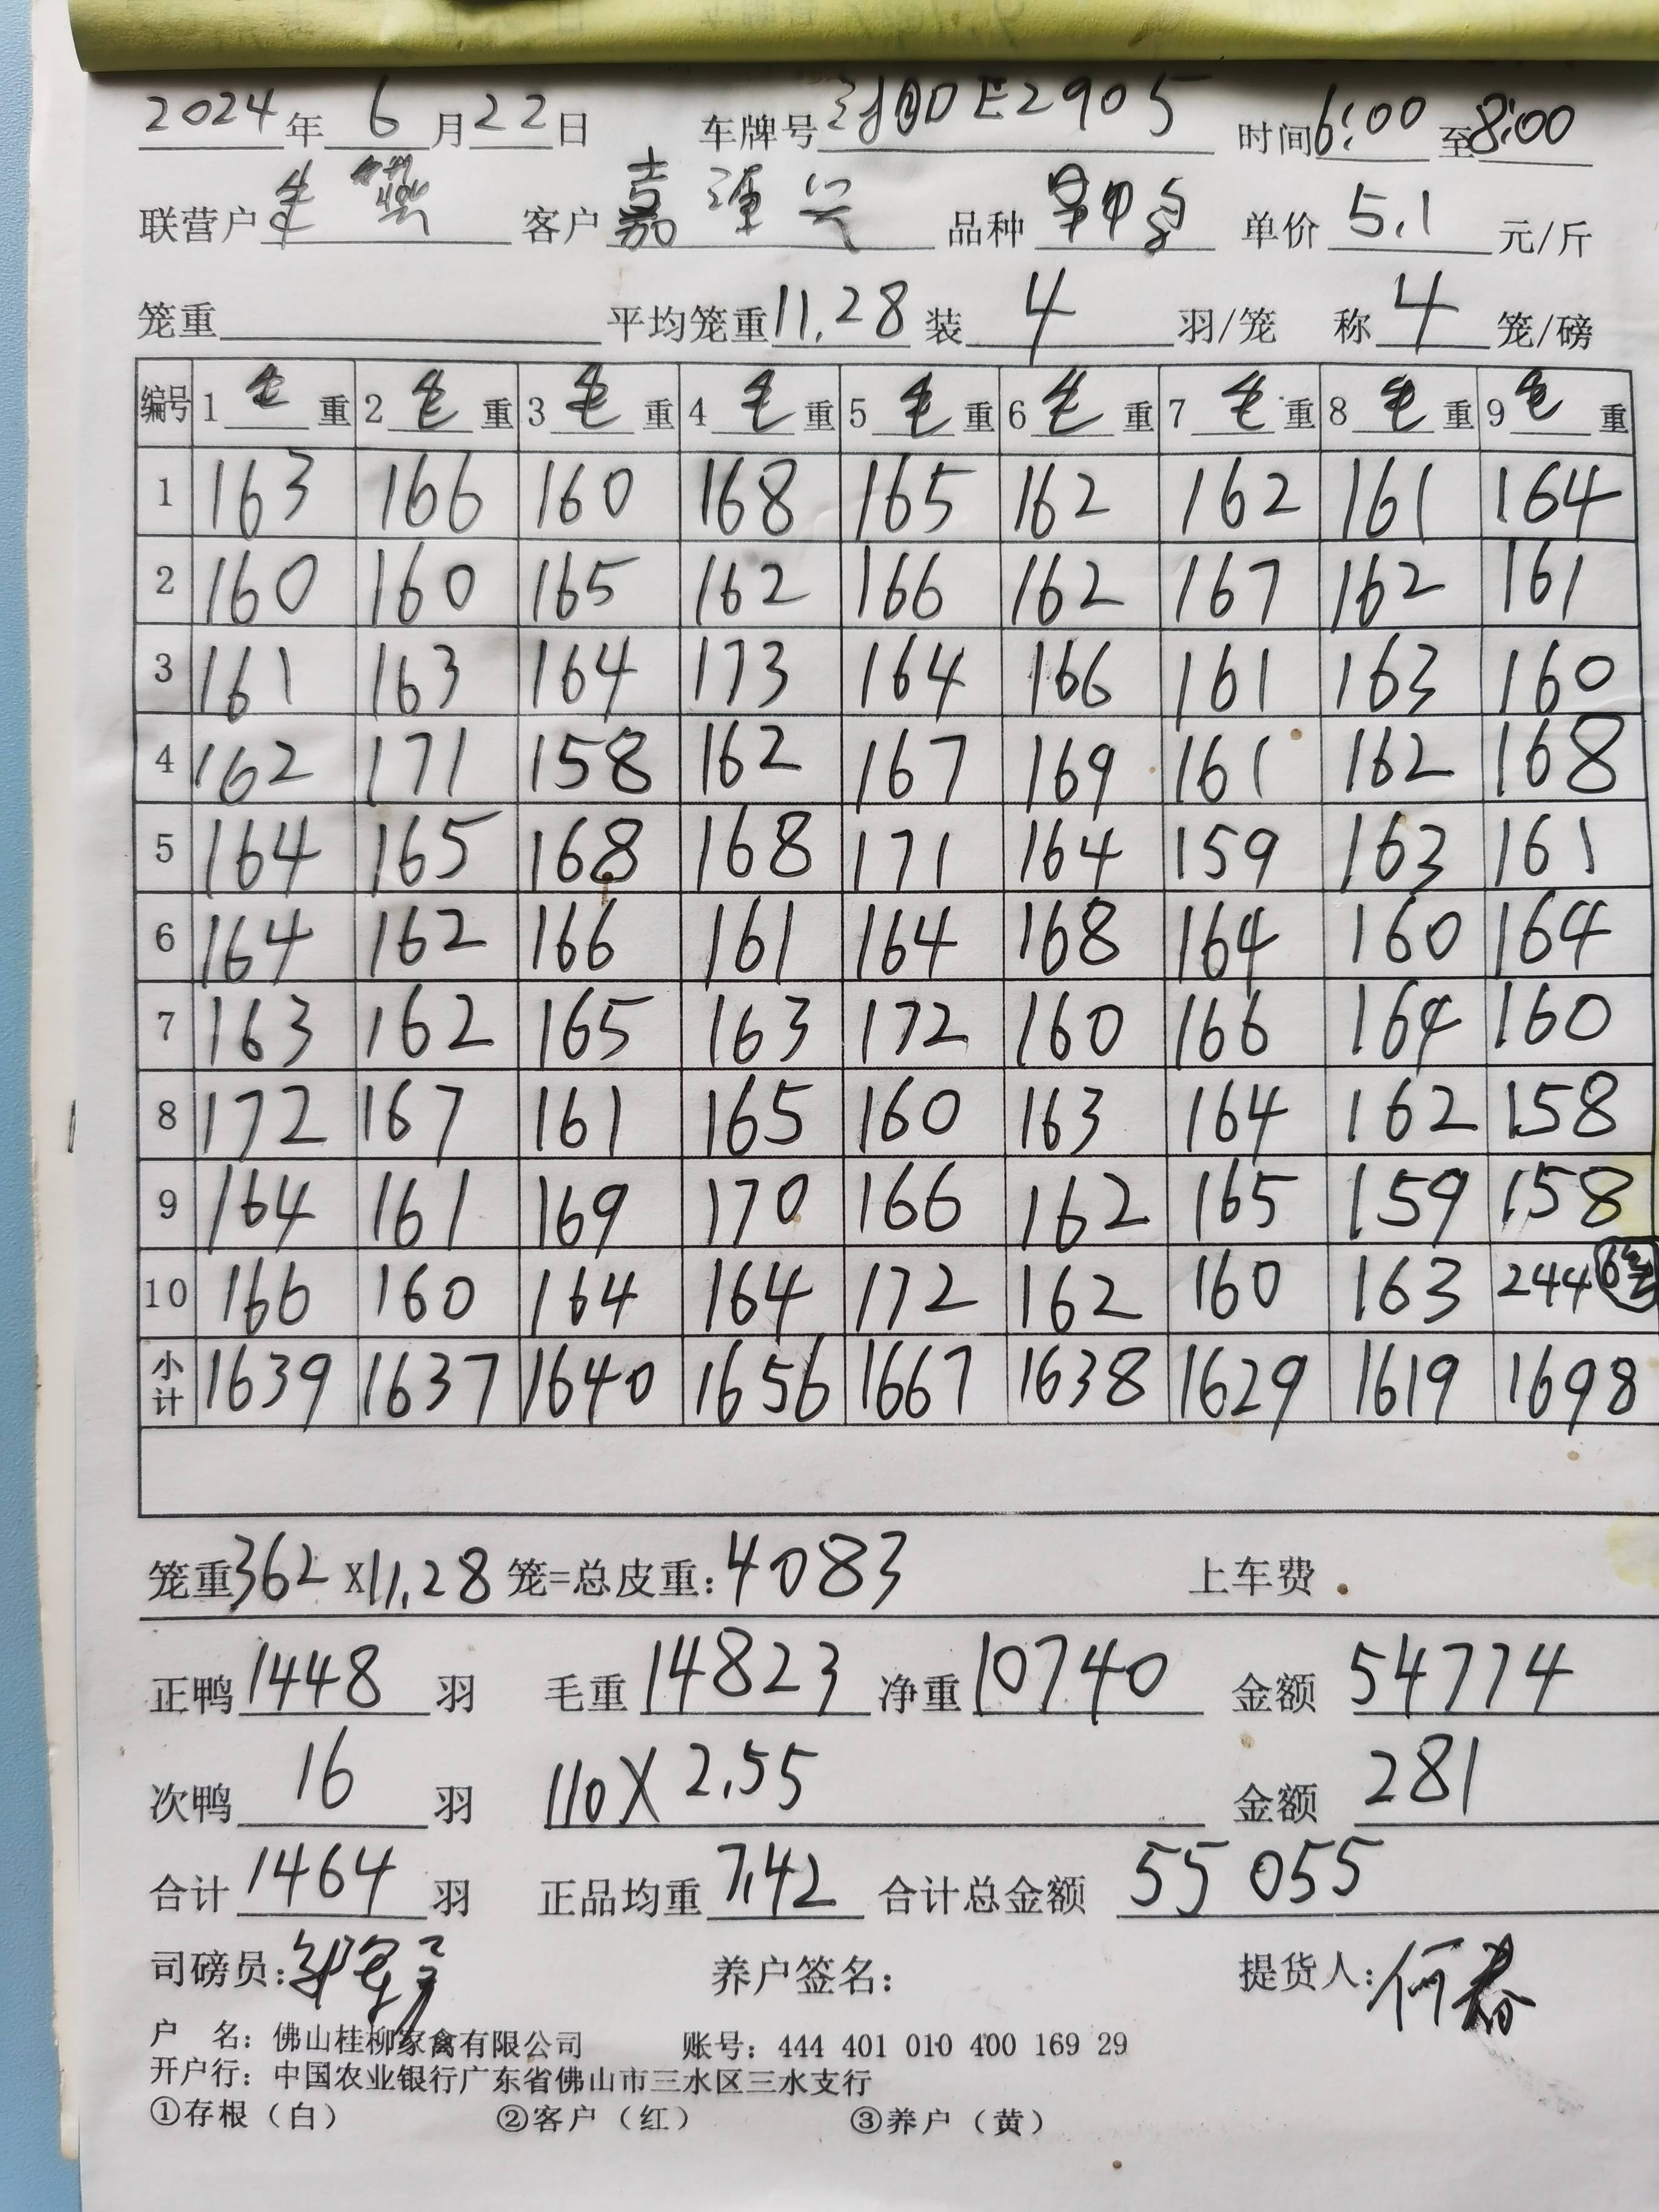 2024年 6 月 22 日 车牌号 E2905 时间 6:00 至 8:00
联营户 客户 嘉运兴 品种 单价 5.1 元/斤
笼重 平均笼重 11.28 装 4 羽/笼 称 4 笼/磅
编号 1 毛 重 2 毛 重 3 毛 重 4 毛 重 5 毛 重 6 毛 重 7 毛 重 8 毛 重 9 毛 重
1 163 166 160 168 165 162 162 161 164
2 160 160 165 162 166 162 167 162 161
3 161 163 164 173 164 166 161 163 160
4 162 171 158 162 167 169 161 162 168
5 164 165 168 168 171 164 159 163 161
6 164 162 166 161 164 168 164 160 164
7 163 162 165 163 172 160 166 164 160
8 172 167 161 165 160 163 164 162 158
9 164 161 169 170 166 162 165 159 158
10 166 160 164 164 172 162 160 163 244 6笼
小计 1639 1637 1640 1656 1667 1638 1629 1619 1698
笼重 362 X 11.28 笼=总皮重: 4083 上车费
正鸭 1448 羽 毛重 14823 净重 10740 金额 54774
次鸭 16 羽 110 X 2.55 金额 281
合计 1464 羽 正品均重 7.42 合计总金额 55055
司磅员: 养户签名: 提货人: 何春
户 名: 佛山桂柳家禽有限公司 账号: 444 401 010 400 169 29
开户行: 中国农业银行广东省佛山市三水区三水支行
①存根（白） ②客户（红） ③养户（黄）